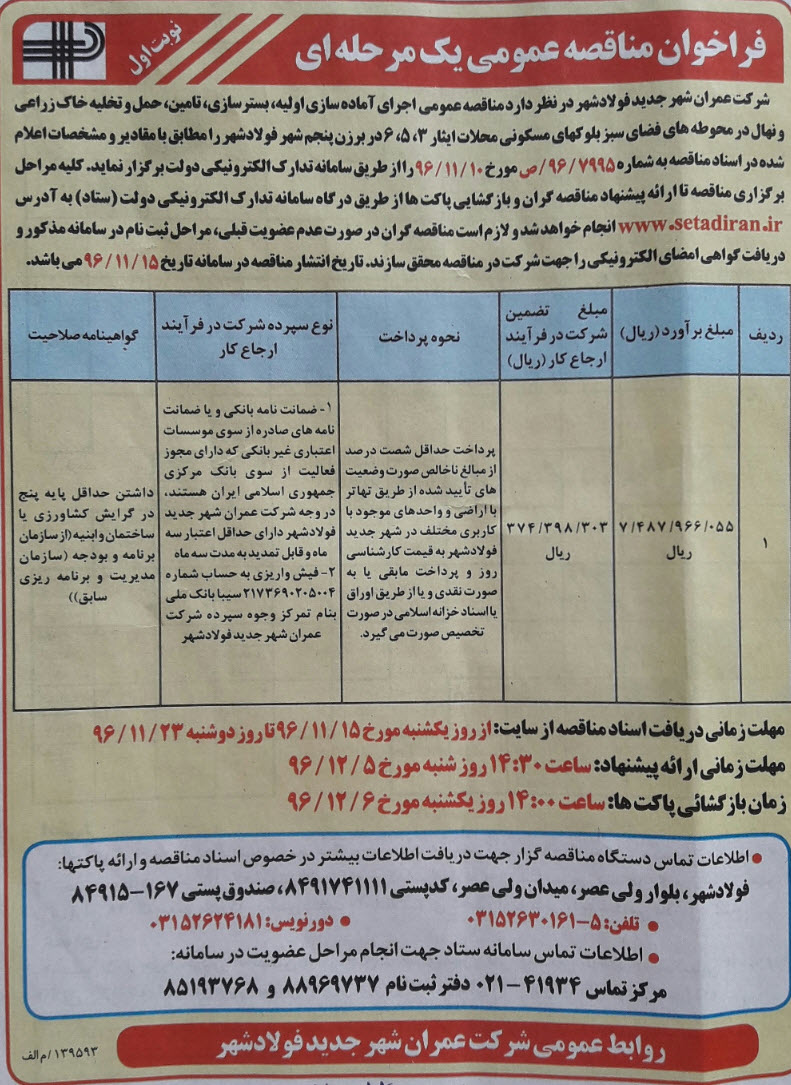 فراخوان مناقصه عمومی یک مرحله ای
نوبت اول
شرکت عمران شهر جدید فولادشهر در نظر دارد مناقصه عمومی اجرای آماده سازی اولیه، بسترسازی، تامین، حمل و تخلیه خاک زراعی
و نهال در محوطه های فضای سبز بلوکهای مسکونی محلات ایثار ۳، ۵، ۶ در برزن پنجم شهر فولادشهر را مطابق با مقادیر و مشخصات اعلام
شده در اسناد مناقصه به شماره ۹۶/۷۹۹۵/ص مورخ ۹۶/۱۱/۱۰ را از طریق سامانه تدارک الکترونیکی دولت برگزار نماید. کلیه مراحل
برگزاری مناقصه تا ارائه پیشنهاد مناقصه گران و بازگشایی پاکت ها از طریق درگاه سامانه تدارک الکترونیکی دولت (ستاد) به آدرس
www.setadiran.ir انجام خواهد شد و لازم است مناقصه گران در صورت عدم عضویت قبلی، مراحل ثبت نام در سامانه مذکور و
دریافت گواهی امضای الکترونیکی را جهت شرکت در مناقصه محقق سازند. تاریخ انتشار مناقصه در سامانه تاریخ ۹۶/۱۱/۱۵ می باشد.
ردیف
مبلغ برآورد (ریال)
مبلغ تضمین
شرکت در فرآیند
ارجاع کار (ریال)
نحوه پرداخت
نوع سپرده شرکت در فرآیند
ارجاع کار
گواهینامه صلاحیت
۱
۷/۴۸۷/۹۶۶/۰۵۵
ریال
۳۷۴/۳۹۸/۳۰۳
ریال
پرداخت حداقل شصت درصد
از مبالغ ناخالص صورت وضعیت
های تأیید شده از طریق تهاتر
با اراضی و واحدهای موجود با
کاربری مختلف در شهر جدید
فولادشهر به قیمت کارشناسی
روز و پرداخت مابقی یا به
صورت نقدی و یا از طریق اوراق
یا اسناد خزانه اسلامی در صورت
تخصیص صورت می گیرد.
۱- ضمانت نامه بانکی و یا ضمانت
نامه های صادره از سوی موسسات
اعتباری غیر بانکی که دارای مجوز
فعالیت از سوی بانک مرکزی
جمهوری اسلامی ایران هستند،
در وجه شرکت عمران شهر جدید
فولادشهر دارای حداقل اعتبار سه
ماه و قابل تمدید به مدت سه ماه
۲- فیش واریزی به حساب شماره
۲۱۷۳۶۹۰۲۰۵۰۰۴ سیبا بانک ملی
بنام تمرکز وجوه سپرده شرکت
عمران شهر جدید فولادشهر
داشتن حداقل پایه پنج
در گرایش کشاورزی یا
ساختمان و ابنیه (از سازمان
برنامه و بودجه (سازمان
مدیریت و برنامه ریزی
سابق))
مهلت زمانی دریافت اسناد مناقصه از سایت: از روز یکشنبه مورخ ۹۶/۱۱/۱۵ تا روز دوشنبه ۹۶/۱۱/۲۳
مهلت زمانی ارائه پیشنهاد: ساعت ۱۴:۳۰ روز شنبه مورخ ۹۶/۱۲/۵
زمان بازگشائی پاکت ها: ساعت ۱۴:۰۰ روز یکشنبه مورخ ۹۶/۱۲/۶
● اطلاعات تماس دستگاه مناقصه گزار جهت دریافت اطلاعات بیشتر در خصوص اسناد مناقصه و ارائه پاکتها:
فولادشهر، بلوار ولی عصر، میدان ولی عصر، کدپستی ۸۴۹۱۷۴۱۱۱۱، صندوق پستی ۱۶۷-۸۴۹۱۵
● تلفن: ۵-۰۳۱۵۲۶۳۰۱۶۱ ● دورنویس: ۰۳۱۵۲۶۲۴۱۸۱
● اطلاعات تماس سامانه ستاد جهت انجام مراحل عضویت در سامانه:
مرکز تماس ۴۱۹۳۴-۰۲۱ دفتر ثبت نام ۸۸۹۶۹۷۳۷ و ۸۵۱۹۳۷۶۸
روابط عمومی شرکت عمران شهر جدید فولادشهر
۱۳۹۵۹۳/م الف